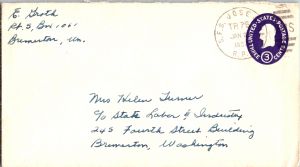 E. Groth
Rt. 5, Box 1061
Bremerton, Wn.
UNITED STATES POSTAGE
THREE CENTS
3
TR 76
JAN
R.P.
Mrs Helen Turner
c/o State Labor & Industry
245 Fourth Street Building
Bremerton, Washington